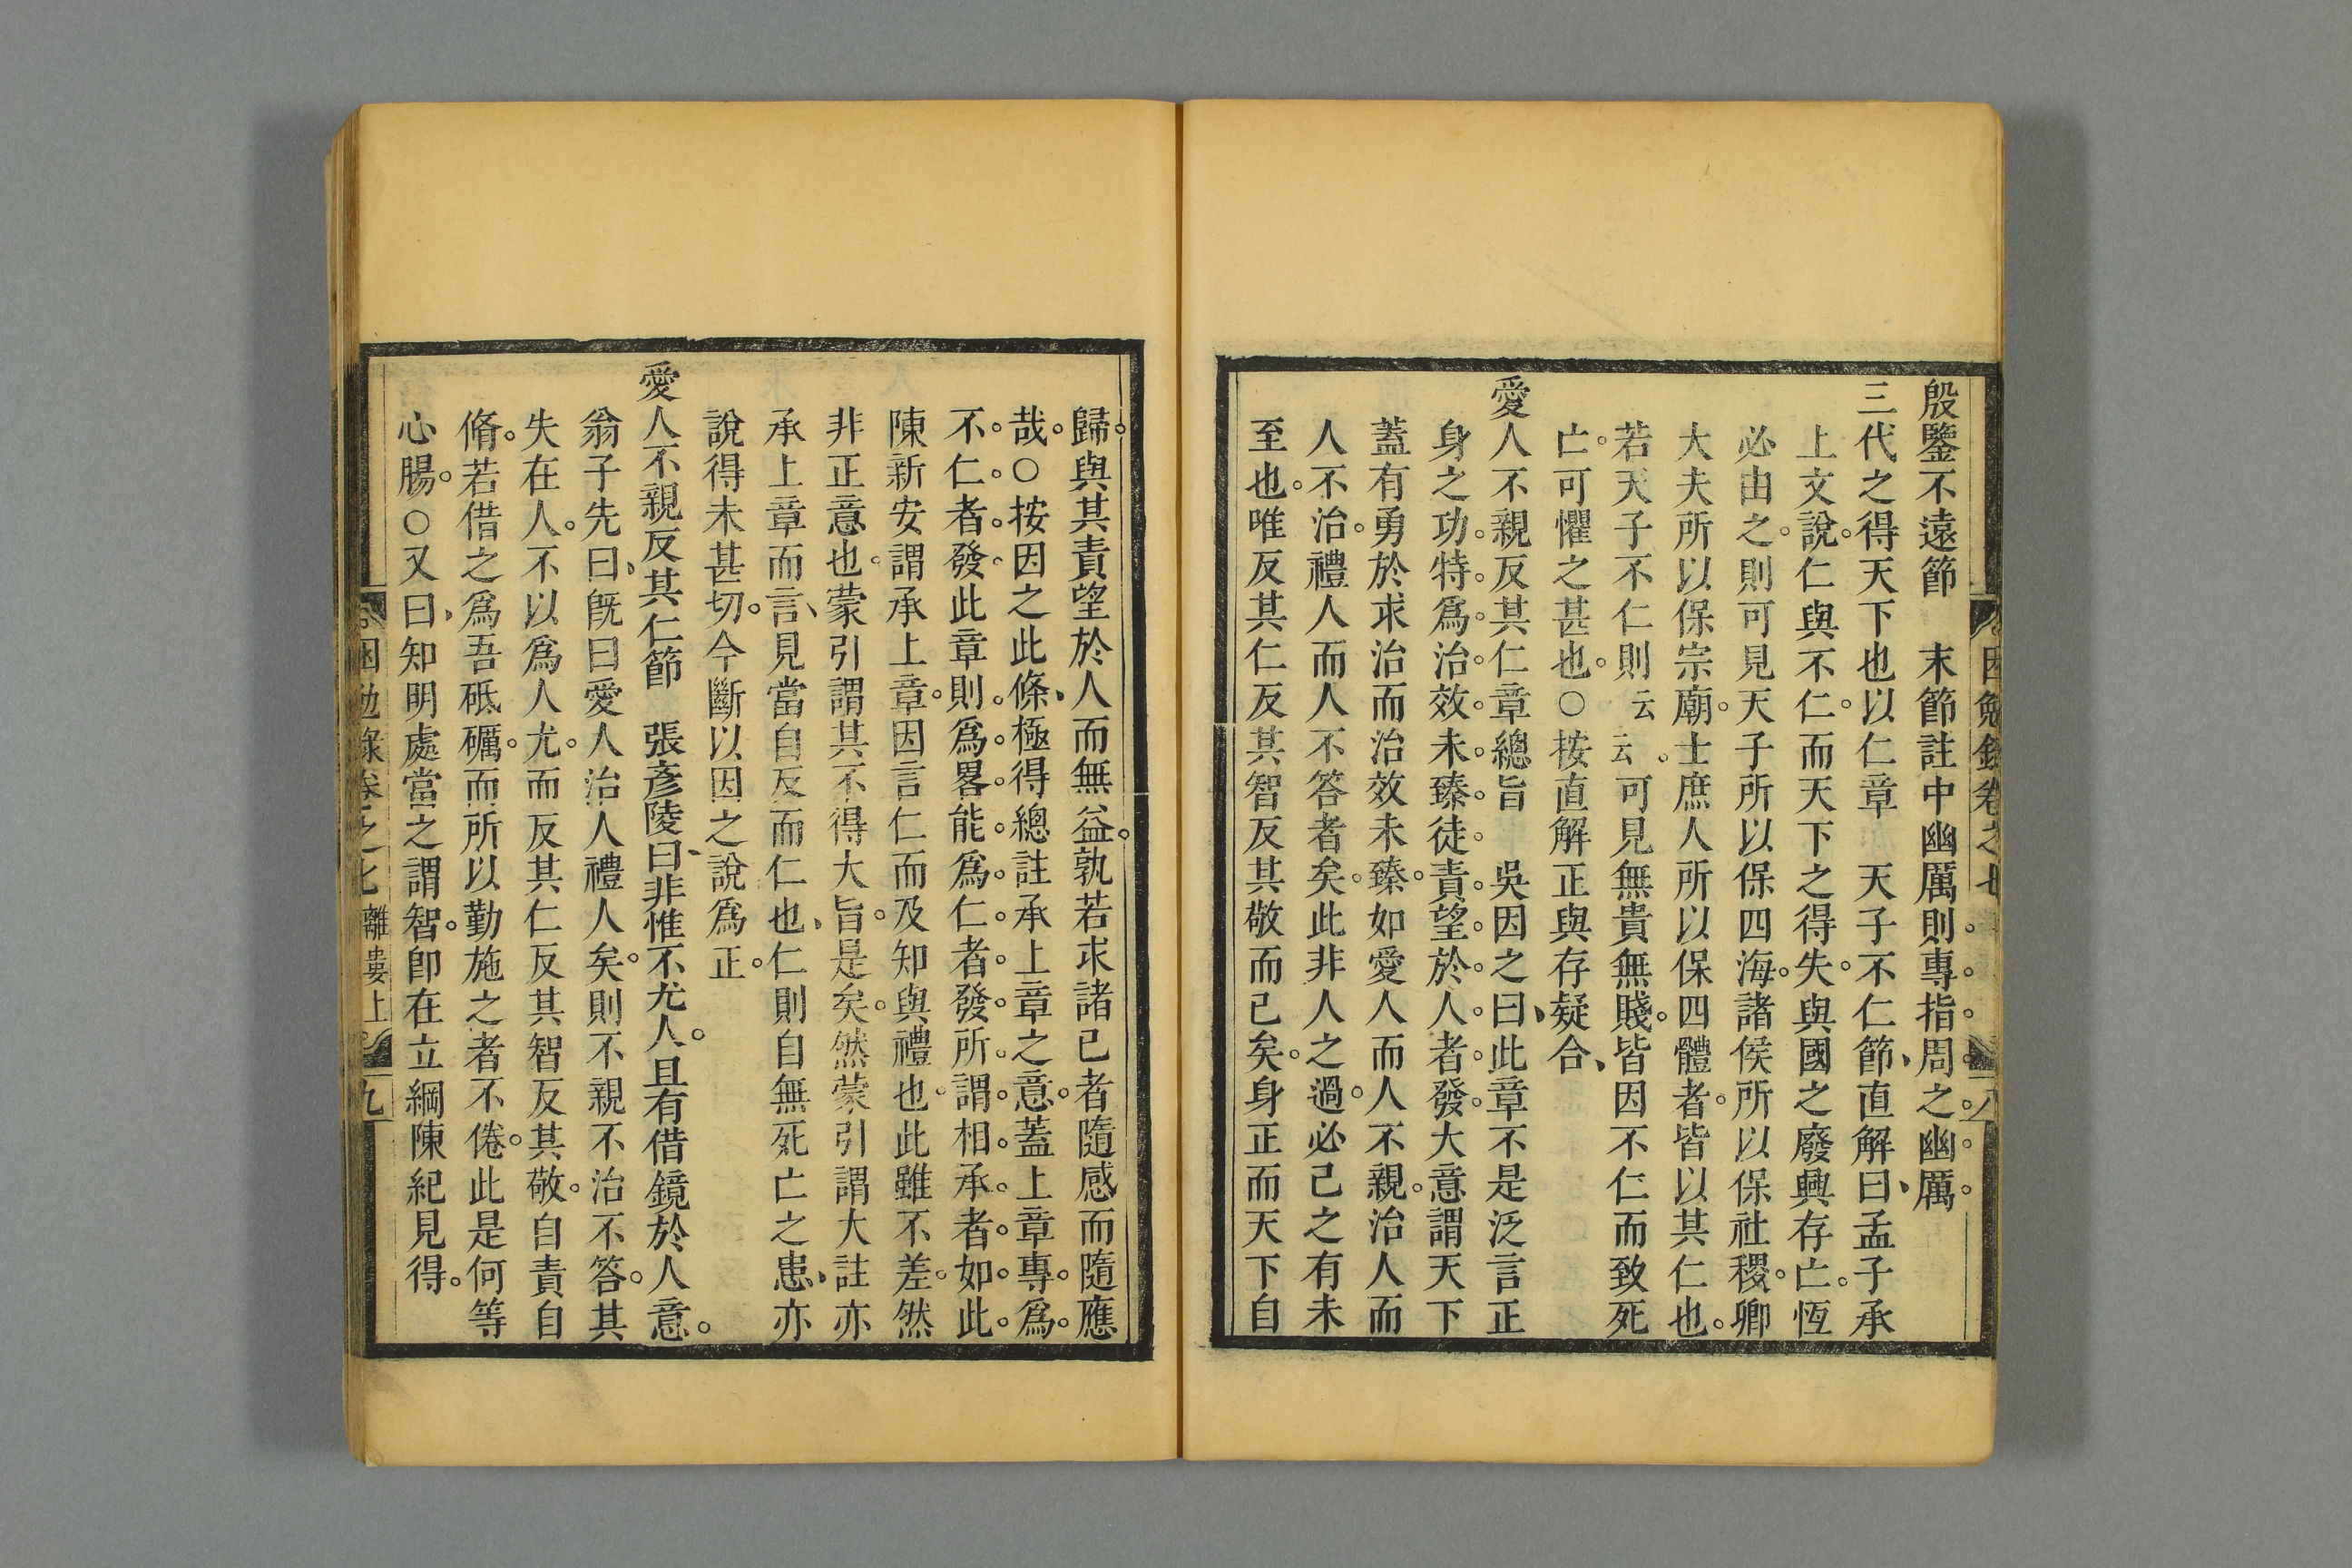 殷鑒不遠節　末節註中幽厲則專指周之幽厲
三代之得天下也以仁章　天子不仁節直解曰孟子承
上文說仁與不仁而天下之得失與國之廢興存亡恆
必由之則可見天子所以保四海諸侯所以保社稷卿
大夫所以保宗廟士庶人所以保四體者皆以其仁也
若天子不仁則云云可見無貴無賤皆因不仁而致死
亡可懼之甚也○按直解正與存疑合
愛人不親反其仁章總旨　吳因之曰此章不是泛言正
身之功特爲治效未臻徒責望於人者發大意謂天下
蓋有勇於求治而治效未臻如愛人而人不親治人而
人不治禮人而人不答者矣此非人之過必己之有未
至也唯反其仁反其智反其敬而已矣身正而天下自
歸與其責望於人而無益孰若求諸已者隨感而隨應
哉○按因之此條極得總註承上章之意蓋上章專爲
不仁者發此章則爲畧能爲仁者發所謂相承者如此
陳新安謂承上章因言仁而及知與禮也此雖不差然
非正意也蒙引謂其不得大旨是矣然蒙引謂大註亦
承上章而言見當自反而仁也仁則自無死亡之患亦
說得未甚切今斷以因之說爲正
愛人不親反其仁節　張彥陵曰非惟不尤人且有借鏡於人意
翁子先曰旣曰愛人治人禮人矣則不親不治不答其
失在人不以爲人尤而反其仁反其智反其敬自責自
脩若借之爲吾砥礪而所以勤施之者不倦此是何等
心腸○又曰知明處當之謂智卽在立綱陳紀見得
因勉錄卷之七　離婁上　九